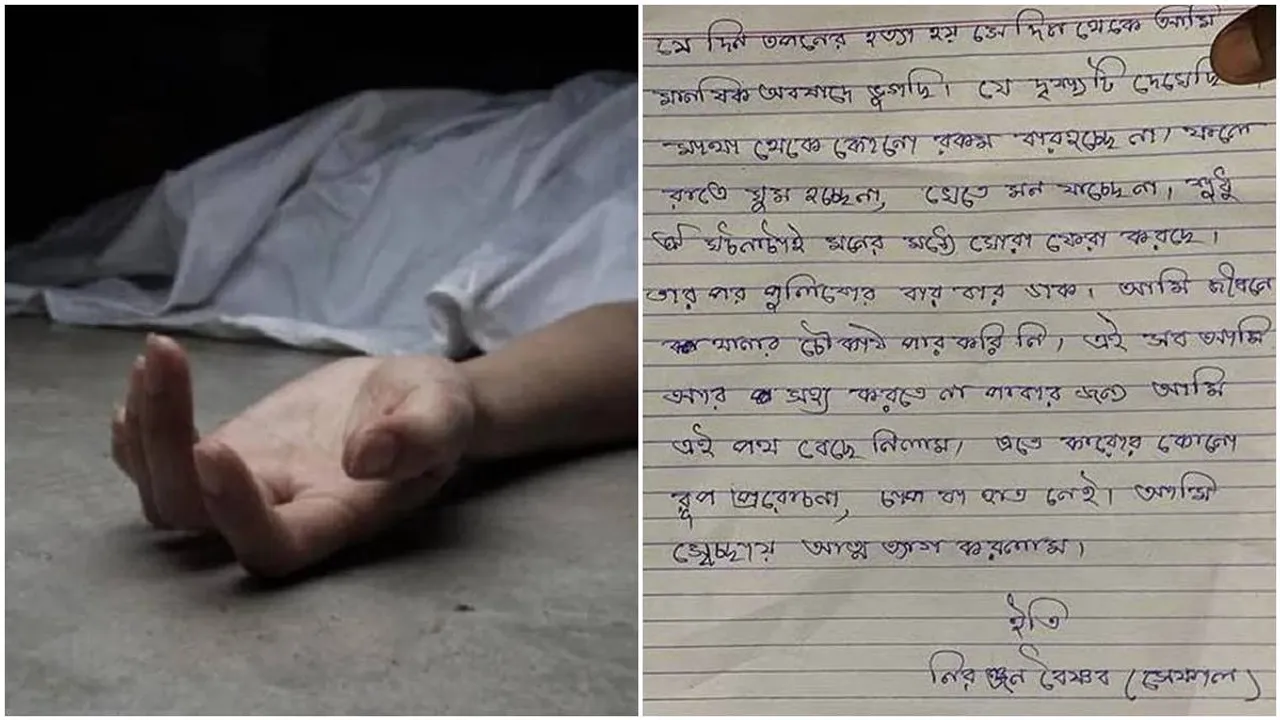 যে দিন তপনের হত্যা হয় সে দিন থেকে আমি
মানষিক অবষাদে ভুগছি। যে দৃশ্যটি দেখেছি
মাথা থেকে কোনো রকম বারহচ্ছে না। ফলে
রাতে ঘুম হচ্ছেনা, খেতে মন যাচ্ছেনা, শুধু
ঐ ঘটনাটাই মনের মধ্যে ঘোরা ফেরা করছে।
তার পর পুলিশের বার বার ডাক। আমি জীবনে
থানার চৌকাঠ পার করি নি, এই সব আমি
আর সহ্য করতে না পারার জন্য আমি
এই পথ বেছে নিলাম, এতে কারোর কোনো
রূপ প্ররোচনা, চাপ বা হাত নেই। আমি
স্বেচ্ছায় আত্ম ত্যাগ করলাম।
ইতি
নিরঞ্জন বৈষ্ণব (সেফাল)